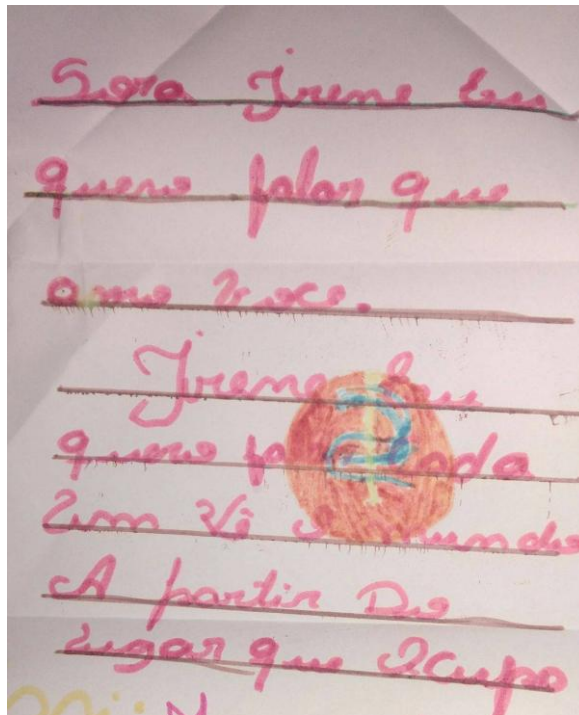 Sora Irene Eu
quero falar que
amo voce.
Irene Eu
quero fa
um Vê o mundo
A partir Do
lugar que Ocupo